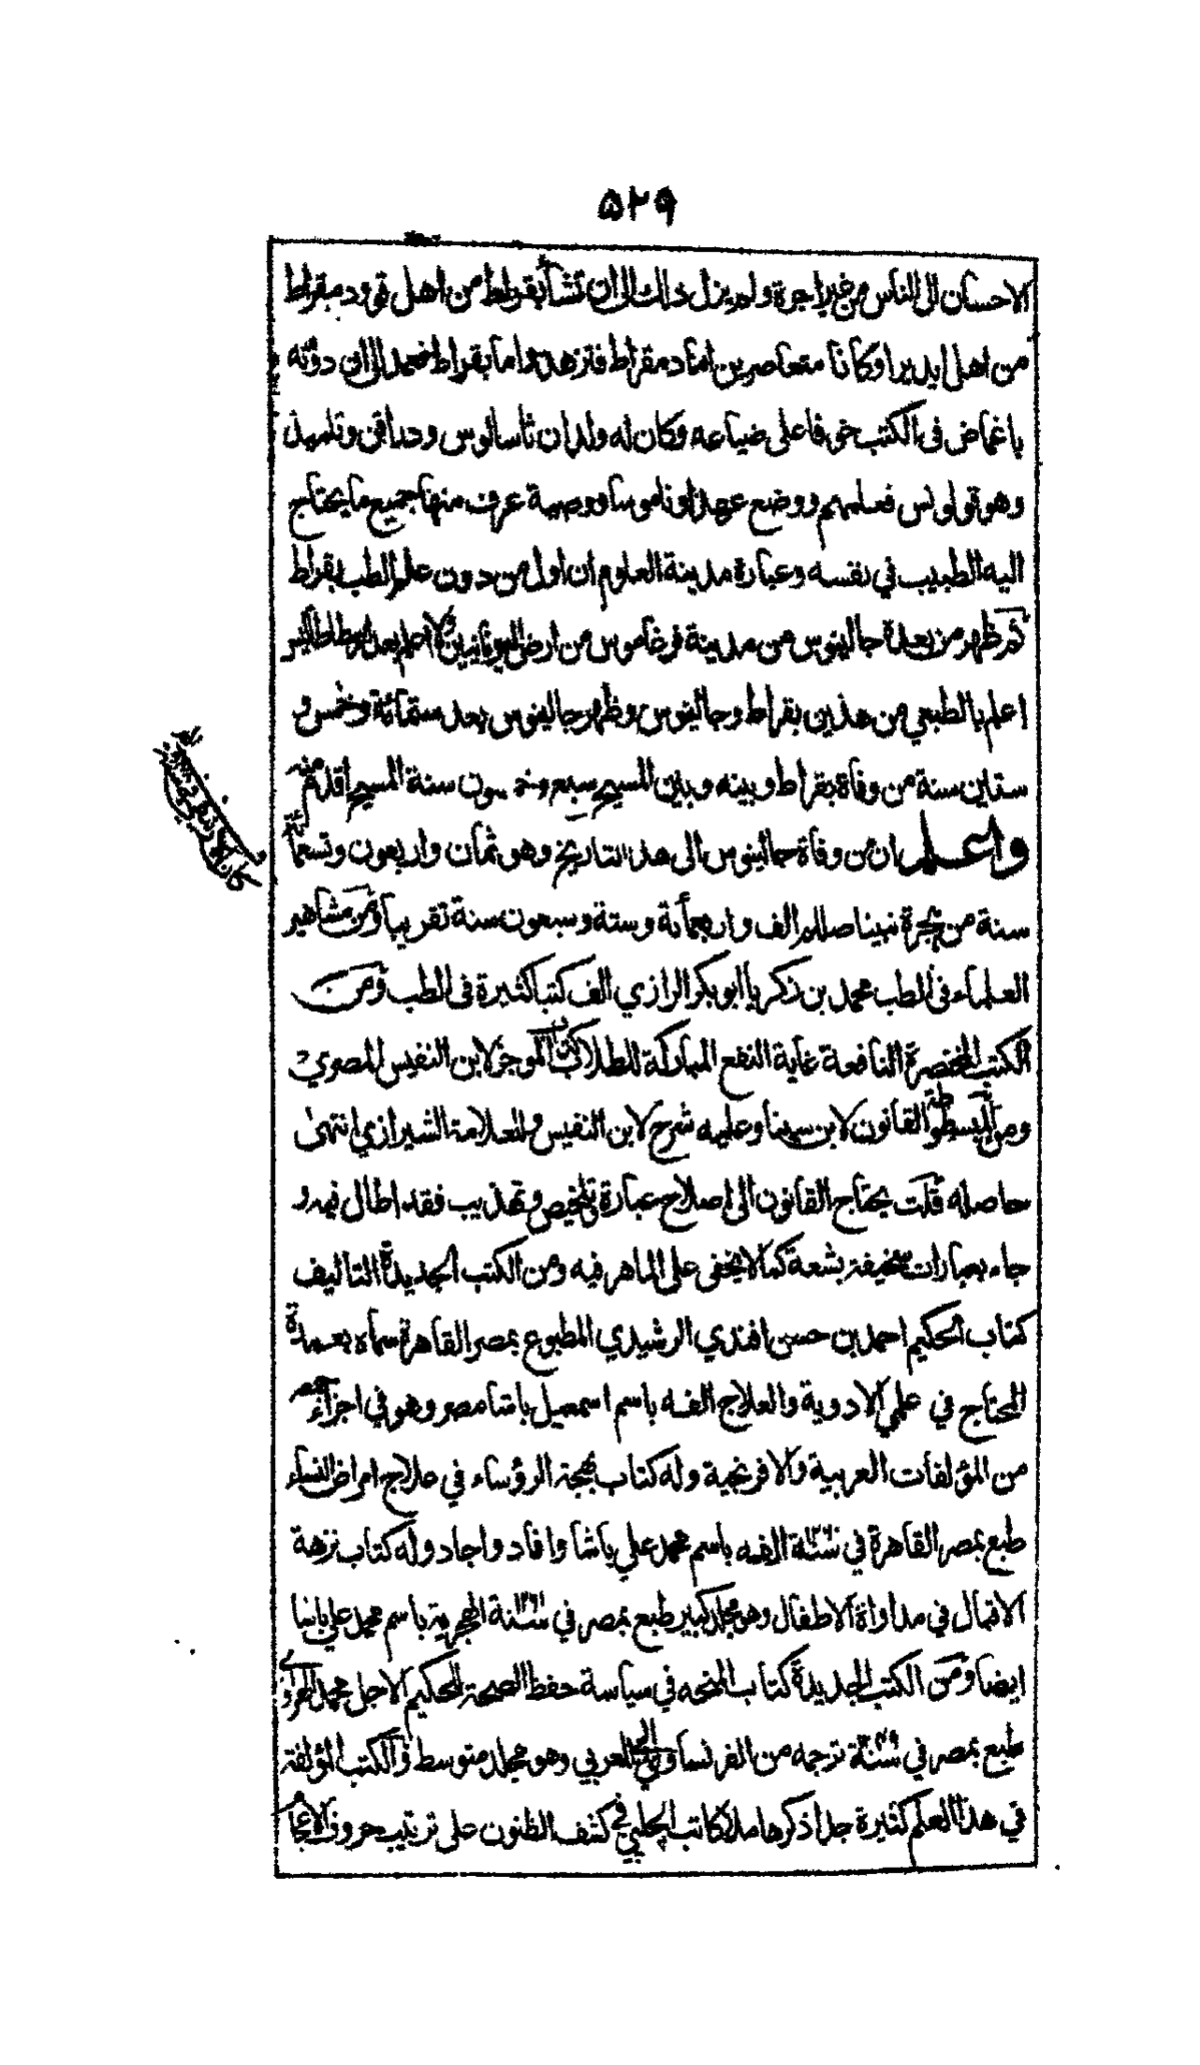 ۵۲۹
الاحسان الى الناس من غير اجرة ولم يزل ذلك الى ان نشأ بقراط من اهل قو ودمقراط
من اهل ابديرا وكانا متعاصرين اما دمقراط فتزهد واما بقراط فعمد الى ان دونه
باغماض فى الكتب خوفا على ضياعه وكان له ولدان ثاسالوس ودراقن وتلميذ
وهو قولولس فعلمهم ووضع عهدا وناموسا ووصية عرف منها جميع ما يحتاج
اليه الطبيب في نفسه وعبارة مدينة العلوم ان اول من دون علم الطب بقراط
ثم ظهر من بعدة جالينوس من مدينة فرغاموس من ارض اليونانيين ولا اعلم بعد ارسطاطاليس
اعلم بالطبعي من هذين بقراط وجالينوس وظهر جالينوس بعد ستمائة وخمس و
ستين سنة من وفاة بقراط وبينه وبين المسيح سبع وخمسون سنة المسيح اقدم منه
واعلم ان من وفاة جالينوس الى هذا التاريخ وهو ثمان واربعون وتسعمائة
سنة من هجرة نبينا صللم الف واربعمائة وستة وسبعون سنة تقريبا ومن مشاهير
العلماء في الطب محمد بن زكريا ابو بكر الرازي الف كتبا كثيرة فى الطب ومن
الكتب المختصرة النافعة غاية النفع المباركة للطلاب كتاب الموجز لابن النفيس المصري
ومن المبسوطة القانون لابن سينا وعليه شرح لابن النفيس وللعلامة الشيرازي انتهى
حاصله قلت يحتاج القانون الى اصلاح عبارة وتلخيص وتهذيب فقد اطال فيه و
جاء بعبارات سخيفة بشعة كما لا يخفى على الماهر فيه ومن الكتب الجديدة التاليف
كتاب الحكيم احمد بن حسن افندي الرشيدي المطبوع بمصر القاهرة سماه بعمدة
المحتاج في علمي الادوية والعلاج الفه باسم اسمعيل باشا مصر وهو في اجزاء
من المؤلفات العربية والافرنجية وله كتاب بهجة الرؤساء في علاج امراض النساء
طبع بمصر القاهرة في سنة الفه باسم محمد علي پاشا وافاد واجاد وله كتاب نزهة
الاقبال في مداواة الاطفال وهو مجلد كبير طبع بمصر في سنة الهجرية باسم محمد علي باشا
ايضا ومن الكتب الجديدة كتاب المنحه في سياسة حفظ الصحة للحكيم الاجل محمد الهراوي
طبع بمصر في سنة ترجمه من الفرنساوي الى العربي وهو مجلد متوسط والكتب المؤلفة
في هذا العلم كثيرة جدا ذكرها ملا كاتب الچلبي في كشف الظنون على ترتيب حروف الاعجام